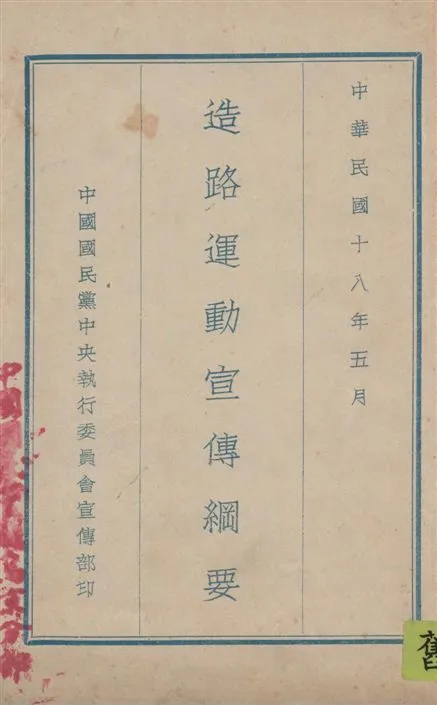 中華民國十八年五月
造路運動宣傳綱要
中國國民黨中央執行委員會宣傳部印
舊